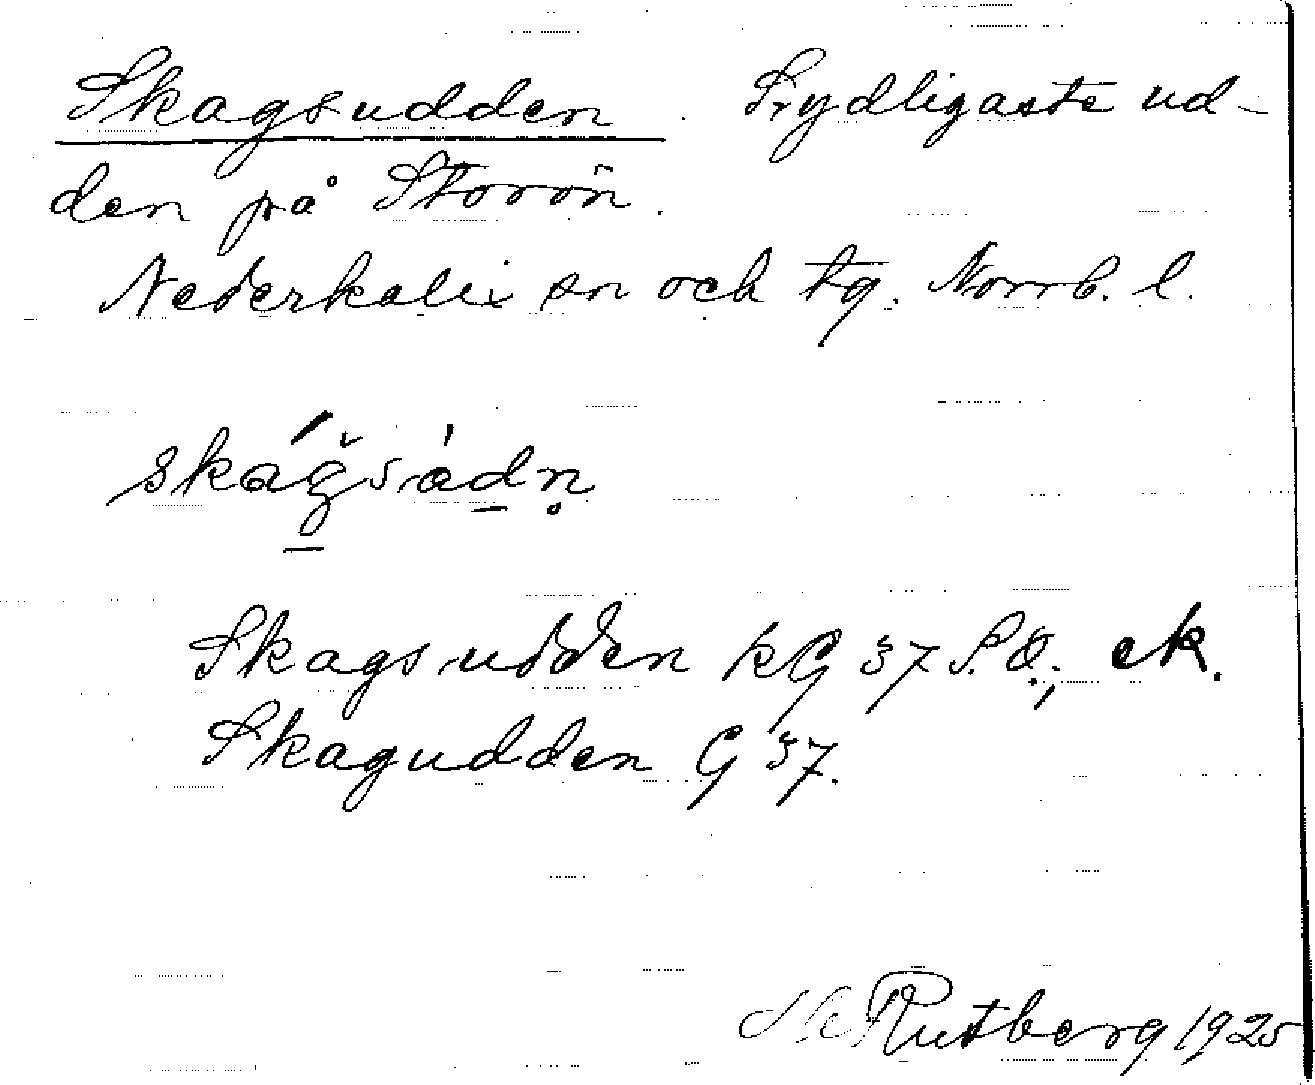 Skagsudden. Sydligaste ud-
den på Storön.
Nederkalix sn och tg. Norrb. l.
skágsádn̥
Skagsudden kG 37 S.O.; ek.
Skagudden G 37.
Rutberg 1925